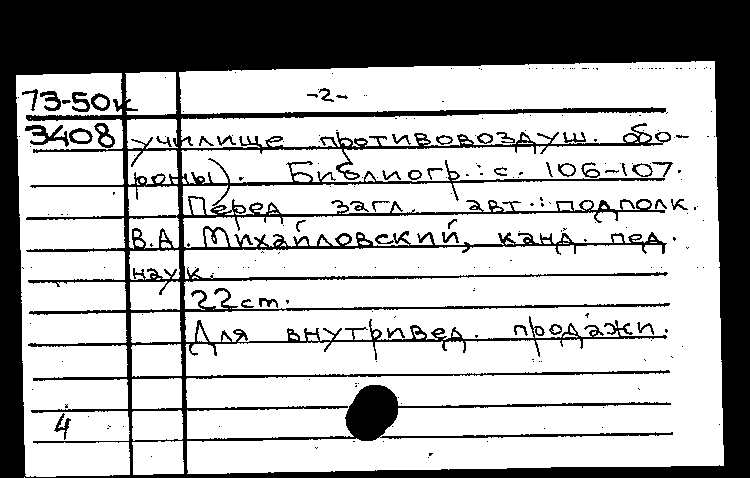 73-50к -2-
3408 училище противовоздуш. обо-
роны). Библиогр.: с. 106-107.
Перед загл. авт.: подполк.
В.А. Михайловский, канд. пед.
наук.
22 ст.
Для внутривед. продажи.
4